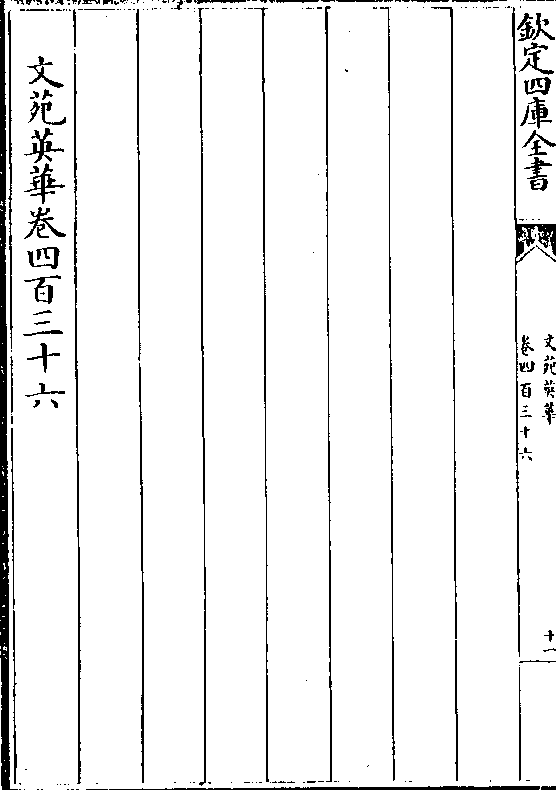 欽定四庫全書
文苑英華
卷四百三十六
十一
文苑英華卷四百三十六